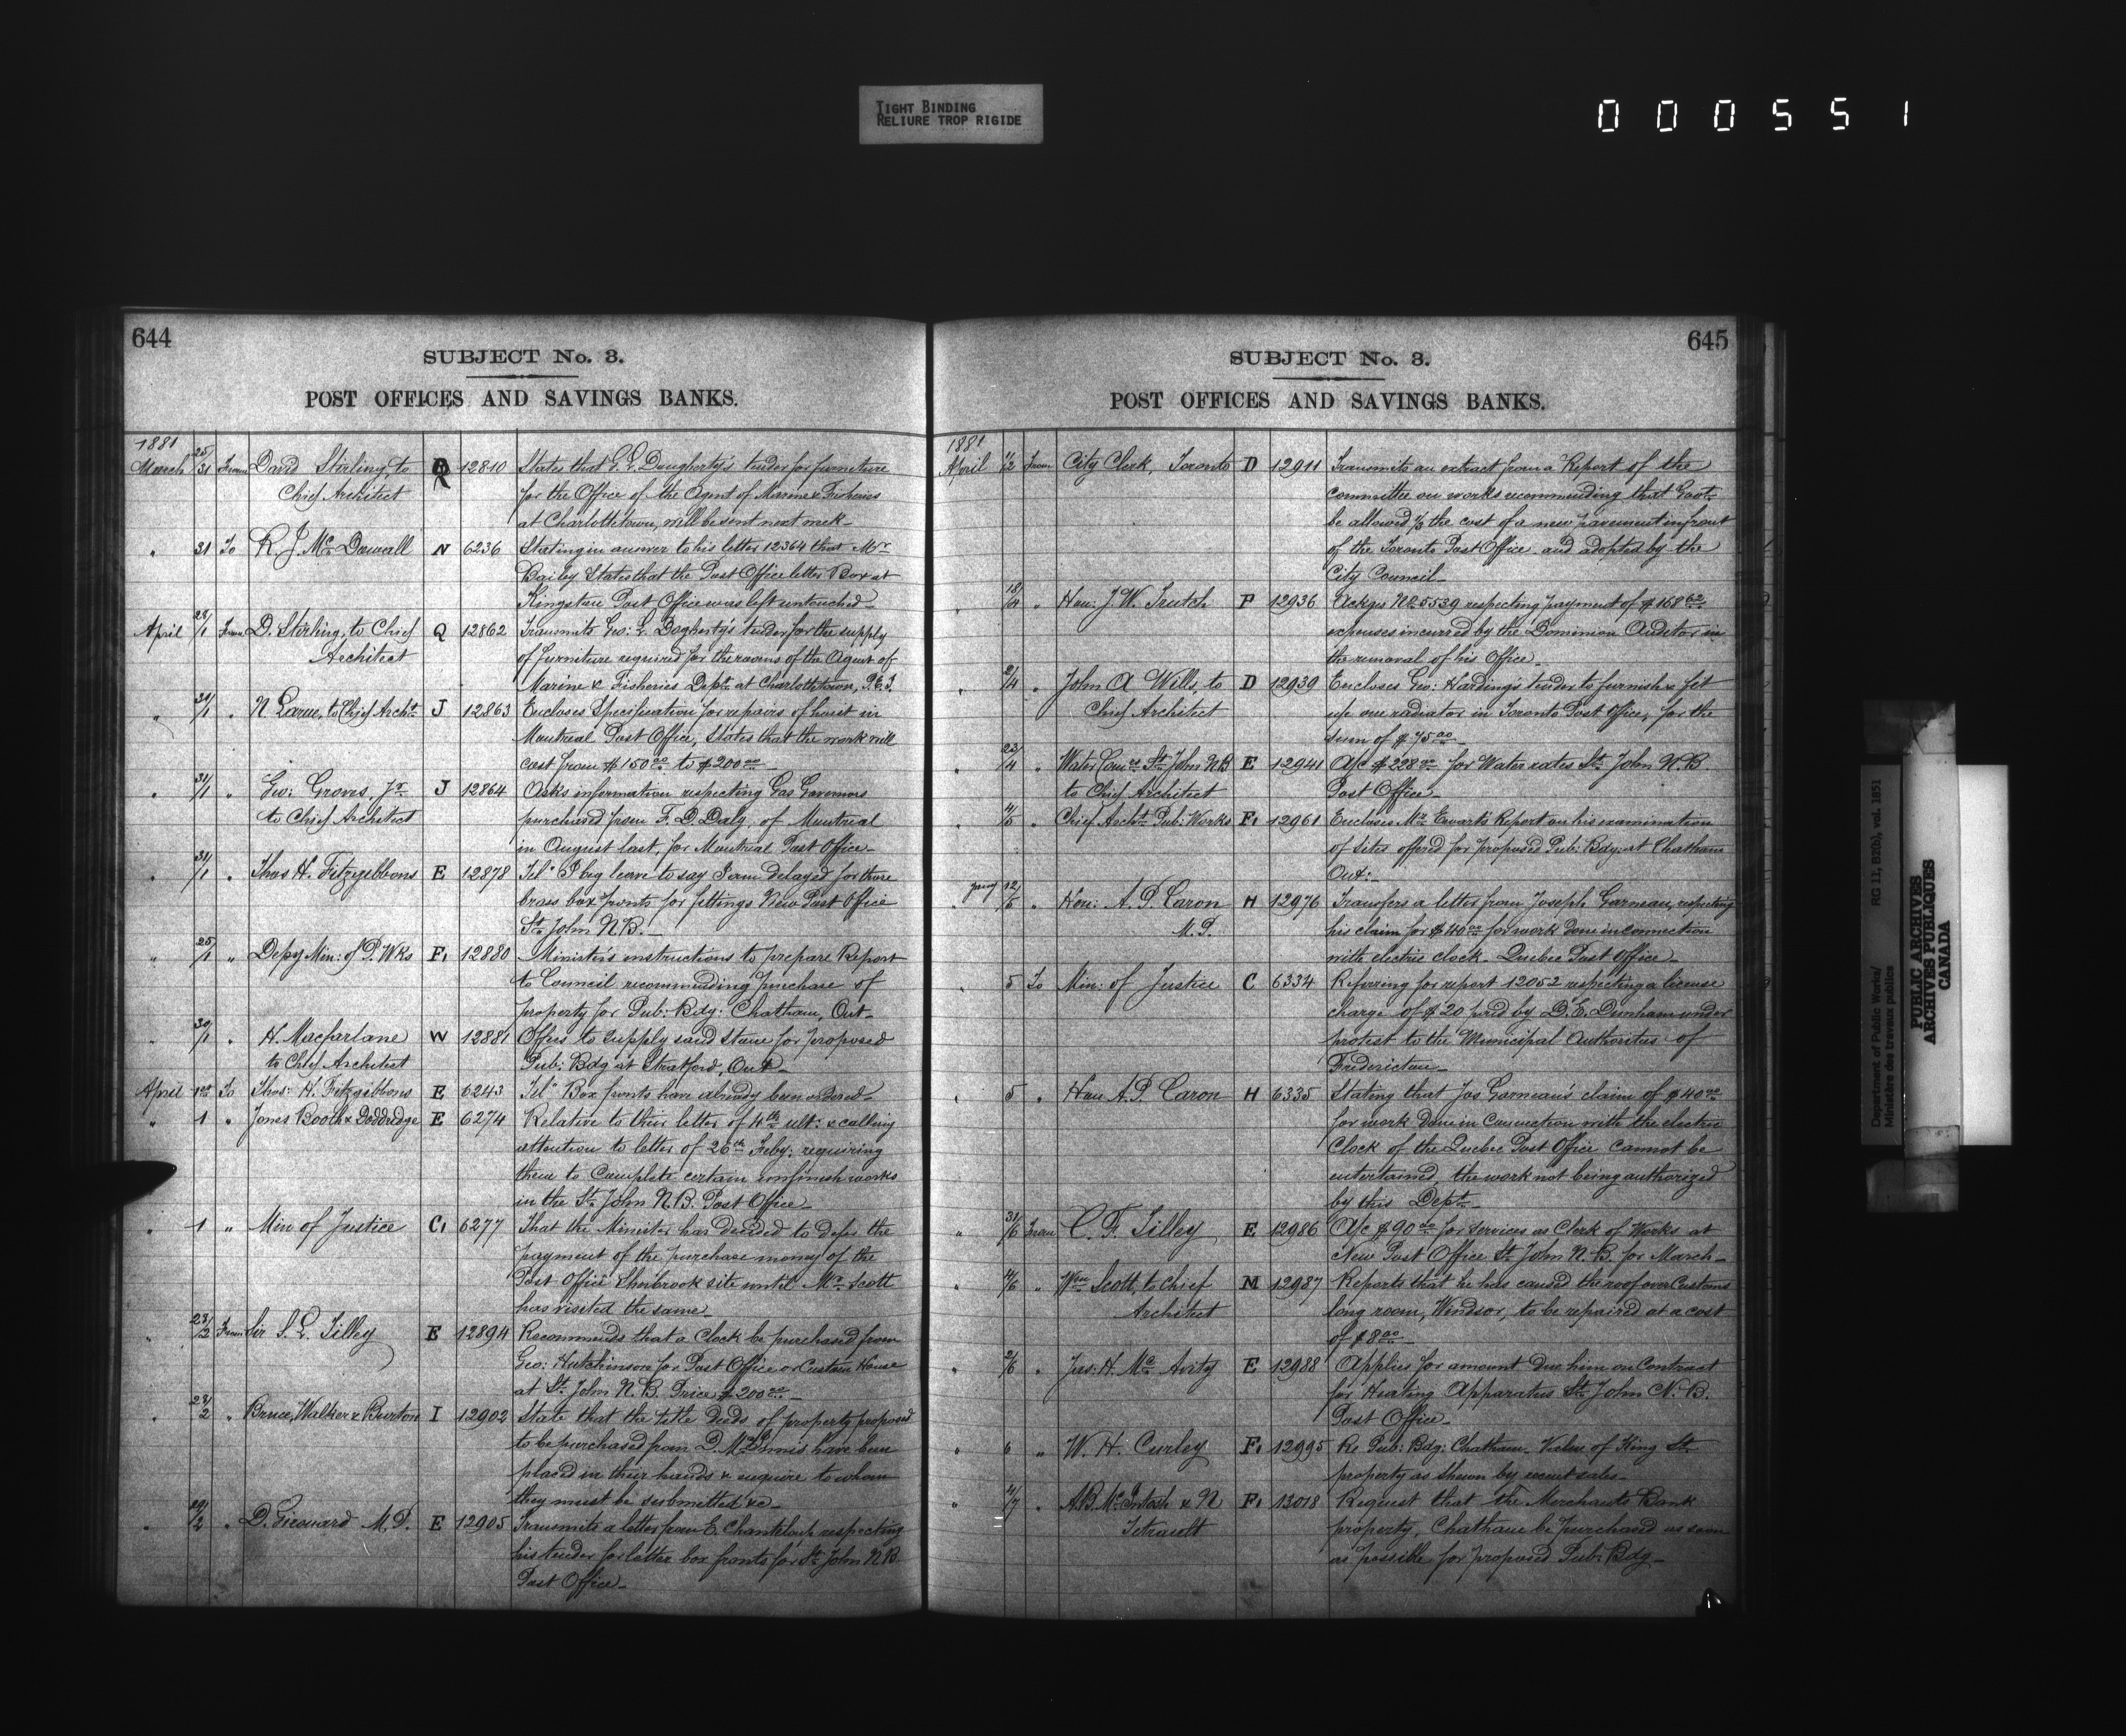 TIGHT BINDING
RELIURE TROP RIGIDE
000551
644
SUBJECT No. 3.
POST OFFICES AND SAVINGS BANKS.
1881
March 25/31 From David Stirling to Q 12810 States that G. L. Dougherty's tender for furniture
Chief Architect for the Office of the Agent of Marine & Fisheries
at Charlottetown, will be sent next week_
" 31 To R. J. McDowall N 6236 Stating in answer to his letter 12364 that Mr
Bailey States that the Post Office letter Box at
Kingston Post Office was left untouched_
April 28/1 From D. Stirling, to Chief Q 12862 Transmits Geo: L. Dogherty's tender for the supply
Architect of furniture required for the rooms of the Agent of
Marine & Fisheries Dept. at Charlottetown, P.E.I.
" 31/1 " N Larue, to Chief Archt. J 12863 Encloses Specification for repairs of hoist in
Montreal Post Office, States that the work will
cost from $150.00 to $200.00_
" 31/1 " Geo: Groves, Jr J 12864 Asks information respecting Gas Governors
to Chief Architect purchased from F. D. Daly, of Montreal
in August last, for Montreal Post Office_
" 31/1 " Thos H. Fitzgibbons E 12878 Tel: I beg leave to say I am delayed for those
brass box fronts for fittings New Post Office
St. John N.B._
" 25/1 " Depy Min: of P. Wks F1 12880 Minister's instructions to prepare Report
to Council recommending purchase of
property for Pub: Bdg: Chatham, Ont_
" 30/1 " H. Macfarlane W 12881 Offers to supply sand stone for proposed
to Chief Architect Pub: Bdg at Stratford, Ont_
April 1st To Thos: H. Fitzgibbons E 6243 Tel: Box fronts have already been ordered_
" 1 " Jones Booth & Doddredge E 6274 Relative to their letter of 4th ult: & calling
attention to letter of 26th Feby: requiring
them to complete certain unfinish works
in the St. John N.B. Post Office_
" 1 " Min of Justice C1 6277 That the Minister has decided to defer the
payment of the purchase money of the
Post Office Sherbrook site until Mr. Scott
has visited the same_
" 28/2 From Sir S. L. Tilley E 12894 Recommends that a Clock be purchased from
Geo: Hutchinson for Post Office or Custom House
at St. John N.B. Price $200.00_
" 28/2 " Bruce, Walker & Burton I 12902 State that the title deeds of property proposed
to be purchased from D. McInnis have been
placed in their hands & enquire to whom
they must be submitted &c_
" 29/2 " D. Girouard M.P. E 12905 Transmits a letter from E. Chanteloup respecting
his tender for letter box fronts for St. John N.B.
Post Office_
645
SUBJECT No. 3.
POST OFFICES AND SAVINGS BANKS.
1881
April /2 From City Clerk, Toronto D 12911 Transmits an extract from a Report of the
committee on works recommending that Govt.
be allowed 1/3 the cost of a new pavement in front
of the Toronto Post Office and adopted by the
City Council_
" 18/4 " Hon: J. W. Trutch P 12936 Ackges No. 5539 respecting payment of $168.62
expenses incurred by the Dominion Auditor in
the removal of his Office_
" 2/4 " John A Wills, to D 12939 Encloses Geo: Harding's tender to furnish & fit
Chief Architect up one radiator in Toronto Post Office, for the
sum of $75.00_
" 23/4 " Water Comrs St. John N.B E 12941 A/c $228.00 for Water rates St. John N.B
to Chief Architect Post Office_
" 4/5 " Chief Archt. Pub: Works F1 12961 Encloses Mr. Ewart's Report on his examination
of Sites offered for proposed Pub: Bdg: at Chatham
Ont:_
" 12/5 " Hon: A. P. Caron H 12976 Transfers a letter from Joseph Garneau, respecting
M.P. his claim for $40.00 for work done in connection
with electric clock_ Quebec Post Office_
" 5 To Min: of Justice C 6334 Referring for report 12052 respecting a license
charge of $20 paid by D. E. Dunham under
protest to the Municipal Authorities of
Fredericton_
" 5 " Hon A. P. Caron H 6335 Stating that Jos Garneau's claim of $40.00
for work done in connection with the electric
Clock of the Quebec Post Office cannot be
entertained, the work not being authorized
by this Dept._
" 31/6 From C. F. Tilley E 12986 A/c $90.00 for services as Clerk of Works at
New Post Office St. John N.B for March_
" 4/6 " Wm Scott, to Chief M 12987 Reports that he has caused the roof over Customs
Architect long room, Windsor, to be repaired at a cost
of $8.00_
" 2/6 " Jas: H. McAvity E 12988 Applies for amount due him on Contract
for Heating Apparatus St. John N.B.
Post Office_
" 6 " W. H. Curley F1 12995 Re Pub: Bdg: Chatham_ Value of King St.
property as shewn by recent sales_
" 4/7 " A.B. McIntosh & N F1 13018 Request that the Merchants Bank
Tetrault property, Chatham be purchased as soon
as possible for proposed Pub: Bdg_
Department of Public Works/
Ministère des travaux publics
RG 11, B2(b), vol. 1851
PUBLIC ARCHIVES
ARCHIVES PUBLIQUES
CANADA